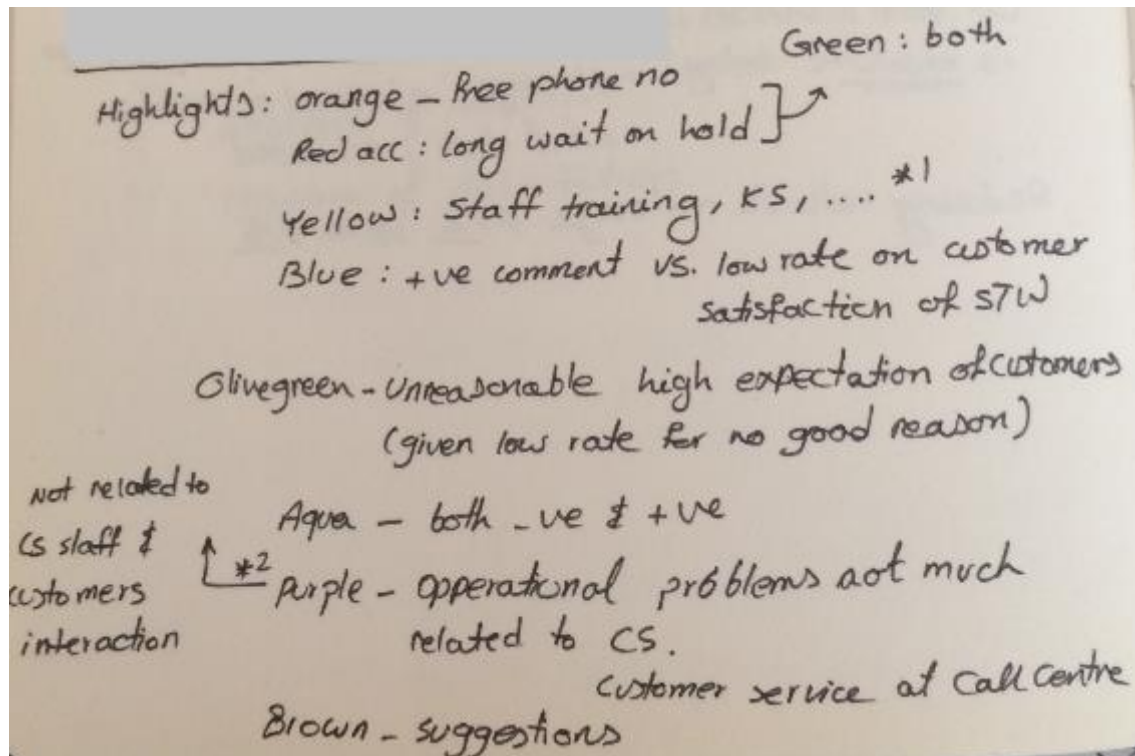 Green : both
Highlights : orange - free phone no
Red acc : long wait on hold
Yellow : staff training, KS, .... *1
Blue : +ve comment vs. low rate on customer
satisfaction of STW
Olivegreen - Unreasonable high expectation of cutomers
(given low rate for no good reason)
Not related to
CS staff &
customers
interaction
Aqua - both -ve & +ve
*2
purple - opperational problems not much
related to CS.
customer service at Call Centre
Brown - suggestions